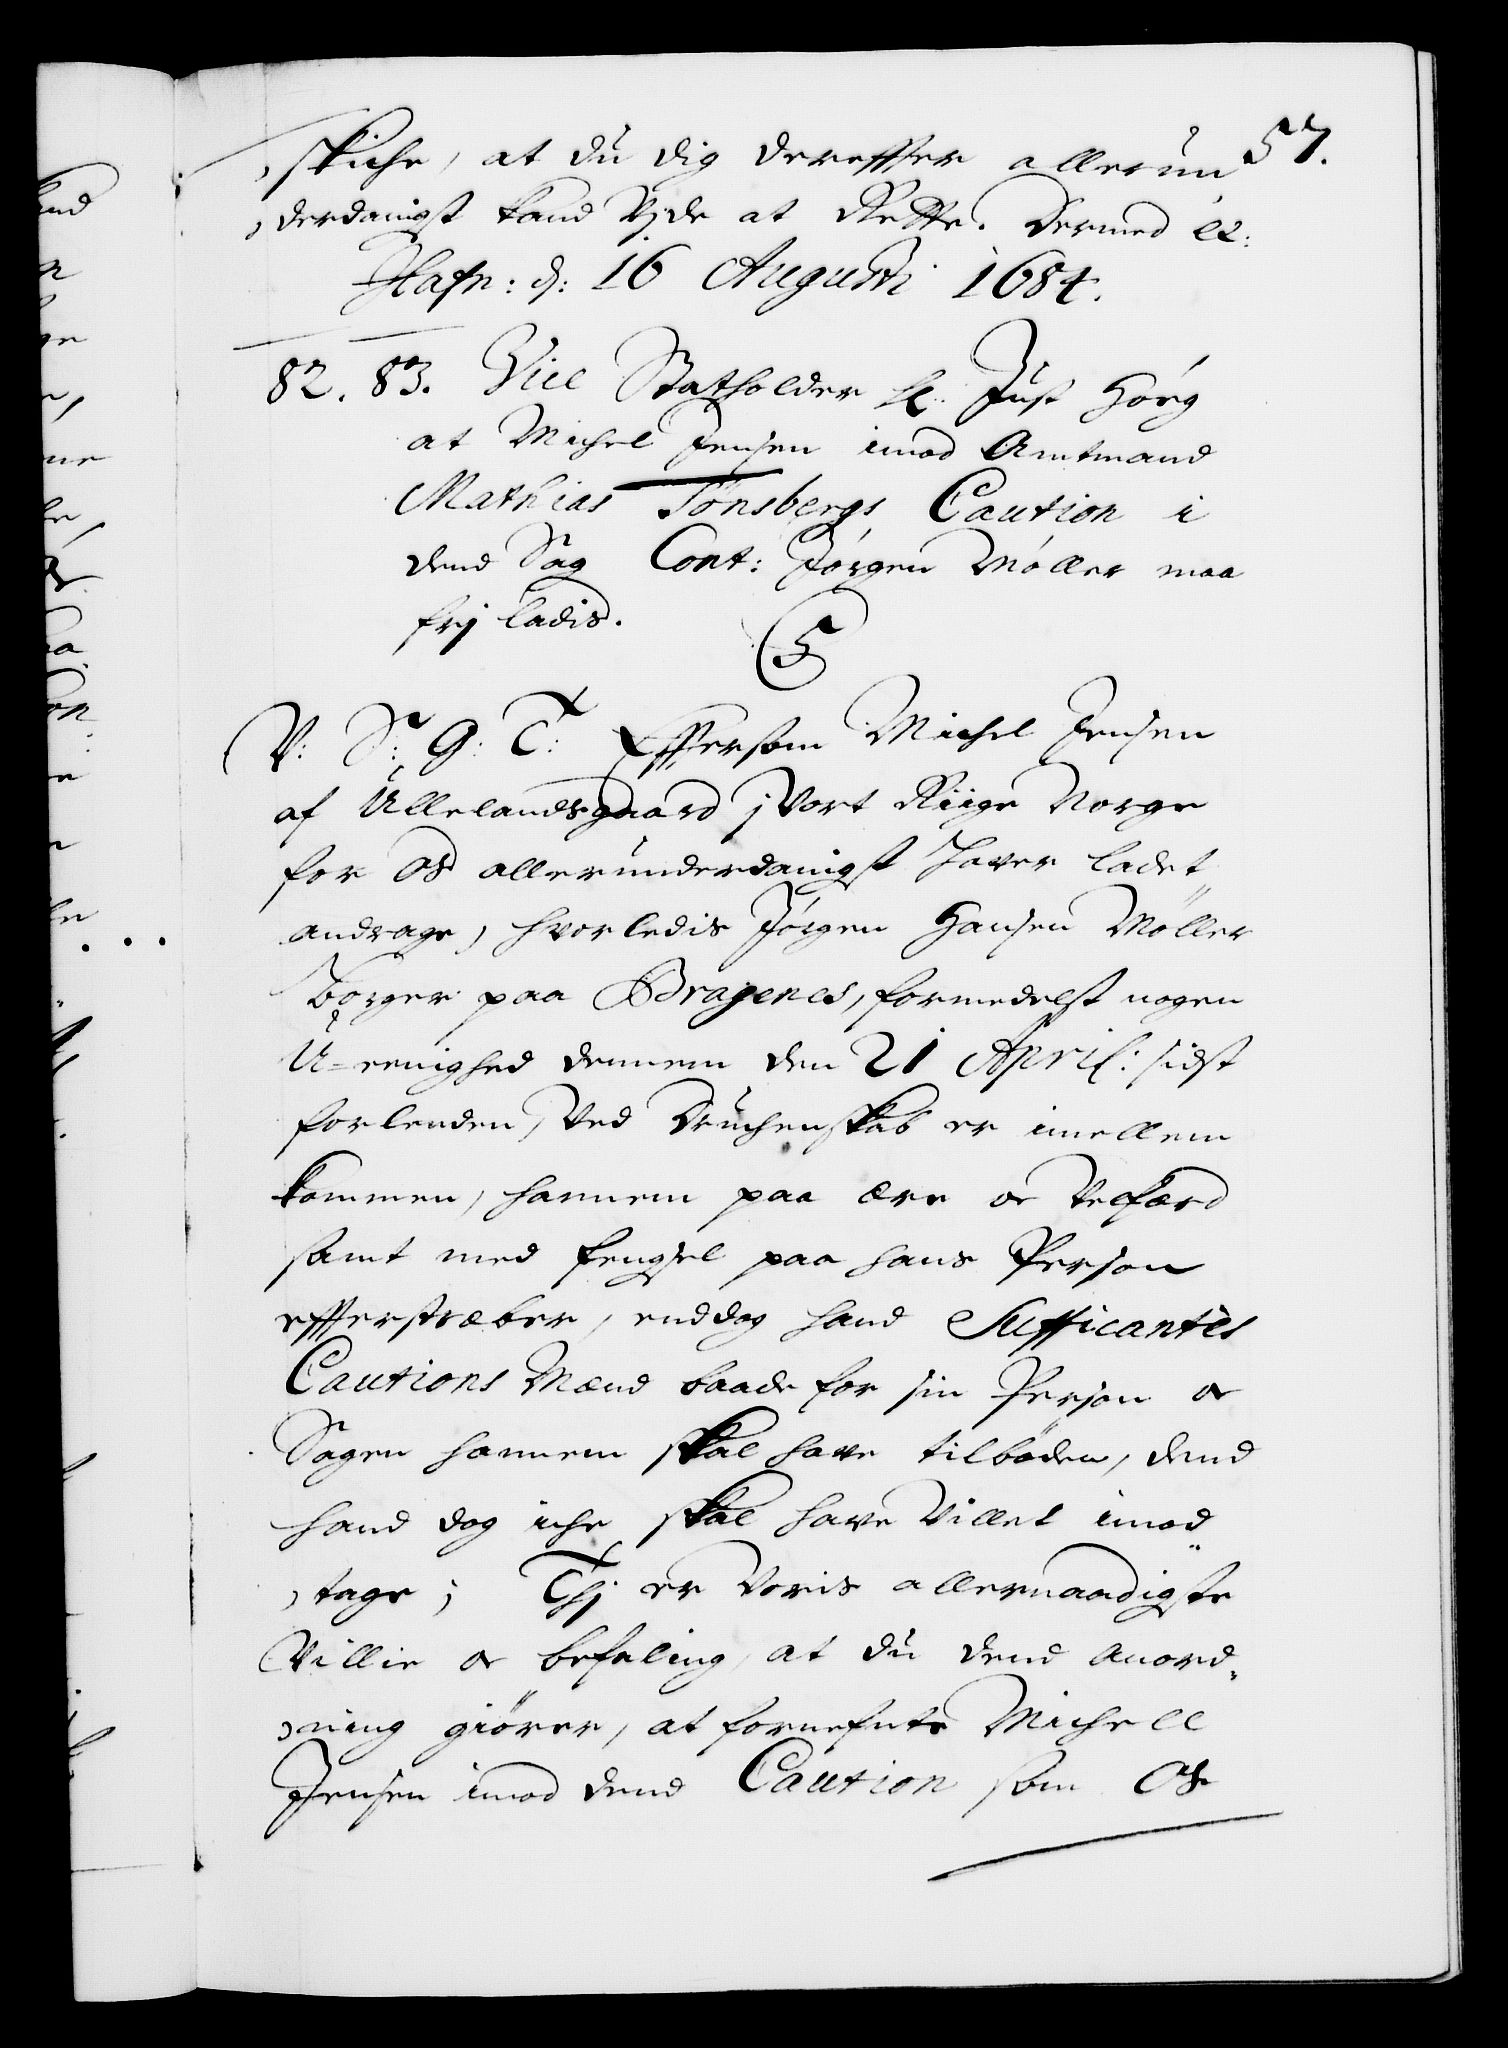 57.
skiche, at du dig dereffter allerun
derdanigst kand vjde at Rette. Dermed etc:
Hafn: d: 16 Augusti 1684.
82. 83. Vice Statholder H: Just Høeg
at Michel Jensen imod Amtmand
Mathias Tønsbergs Caution i
dend Sag Cont: Jørgen Møller maa
frj ladis.
C5
V: S: G: T: Effterson Michel Jensen
af Ullelandsgaard j Vort Riige Norge
for Os allerunderdanigst haver ladet
andrage, hvorledis Jørgen Hansen Møller
Borger paa Bragenes, formedelst nogen
U-eenighed dennem den 21 April: sidst
forleden, ved Druchenskab er imellem
kommen, hannem paa ære oc Velfærd
samt med fengsel paa hans Person
effterstræber, enddog hand Sufficantes
Cautions Mænd baade for sin Person oc
Sagen hannem skal have tilböden, dend
hand dog iche skal have villet imod
tage; Thj er Voris allernaadigste
Villie oc befaling, at du dend anord-
ning giörer, at forneffnte Michell
Jensen imod dend Caution som Os